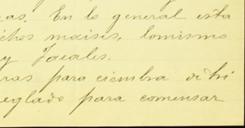 as. En lo general esta
chos maisis, lomismo
y Jacales.
ras para ciembra di
eglado para comensar